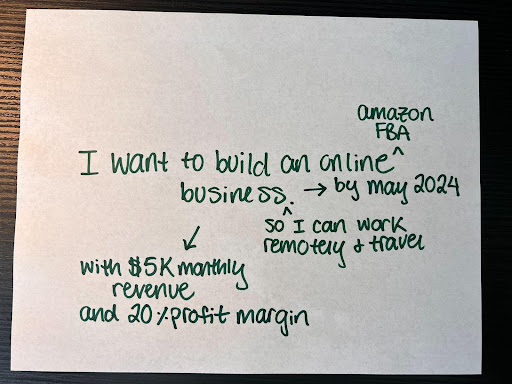 amazon
FBA
^
I want to build an online
business. → by may 2024
^
so I can work
remotely & travel
↙
with $5K monthly
revenue
and 20% profit margin